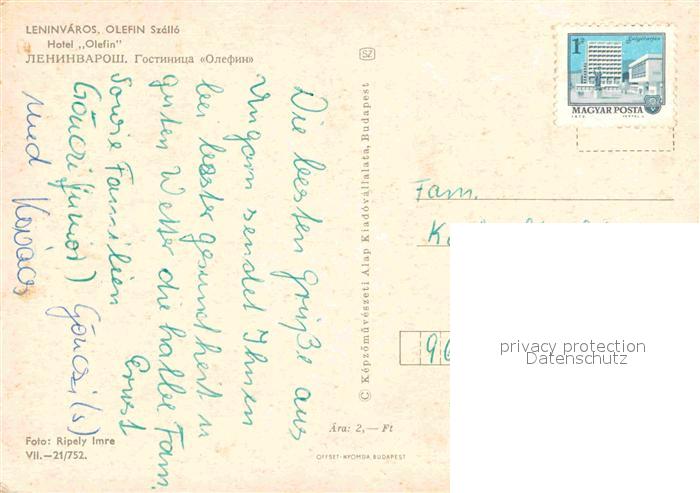 LENINVÁROS, OLEFIN Szálló
Hotel „Olefin"
ЛЕНИНВАРОШ. Гостиница «Олефин»
Die besten Grüße aus
Ungarn sendet Ihnen
bei bester gesundheit u
guten Wetter die halbe Fam.
Ernst
sowie Familien
Gönczi (junior) Gönczi (s)
und Kovács
Foto: Ripely Imre
VII.—21/752.
SZ
© Képzőművészeti Alap Kiadóvállalata, Budapest
Ára: 2,— Ft
OFFSET-NYOMDA, BUDAPEST
1Ft
Salgótarján
MAGYAR POSTA
1973
Fam.
96
privacy protection
Datenschutz